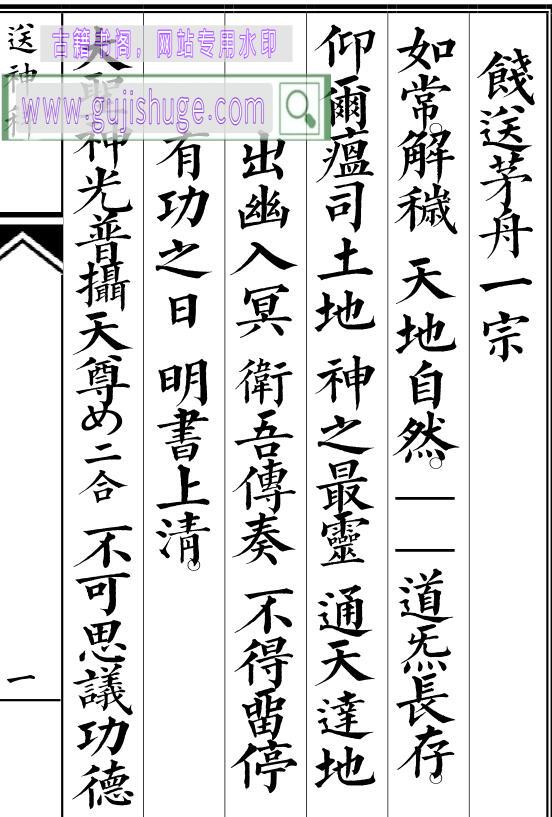 餞送茅舟一宗
如常。解穢 天地自然。一一道炁長存。
仰爾瘟司土地 神之最靈 通天達地
出幽入冥 衛吾傳奏 不得畱停
有功之日 明書上清。
大聖神光普攝天尊め二合 不可思議功德
送神科
一
古籍书阁，网站专用水印
www.gujishuge.com